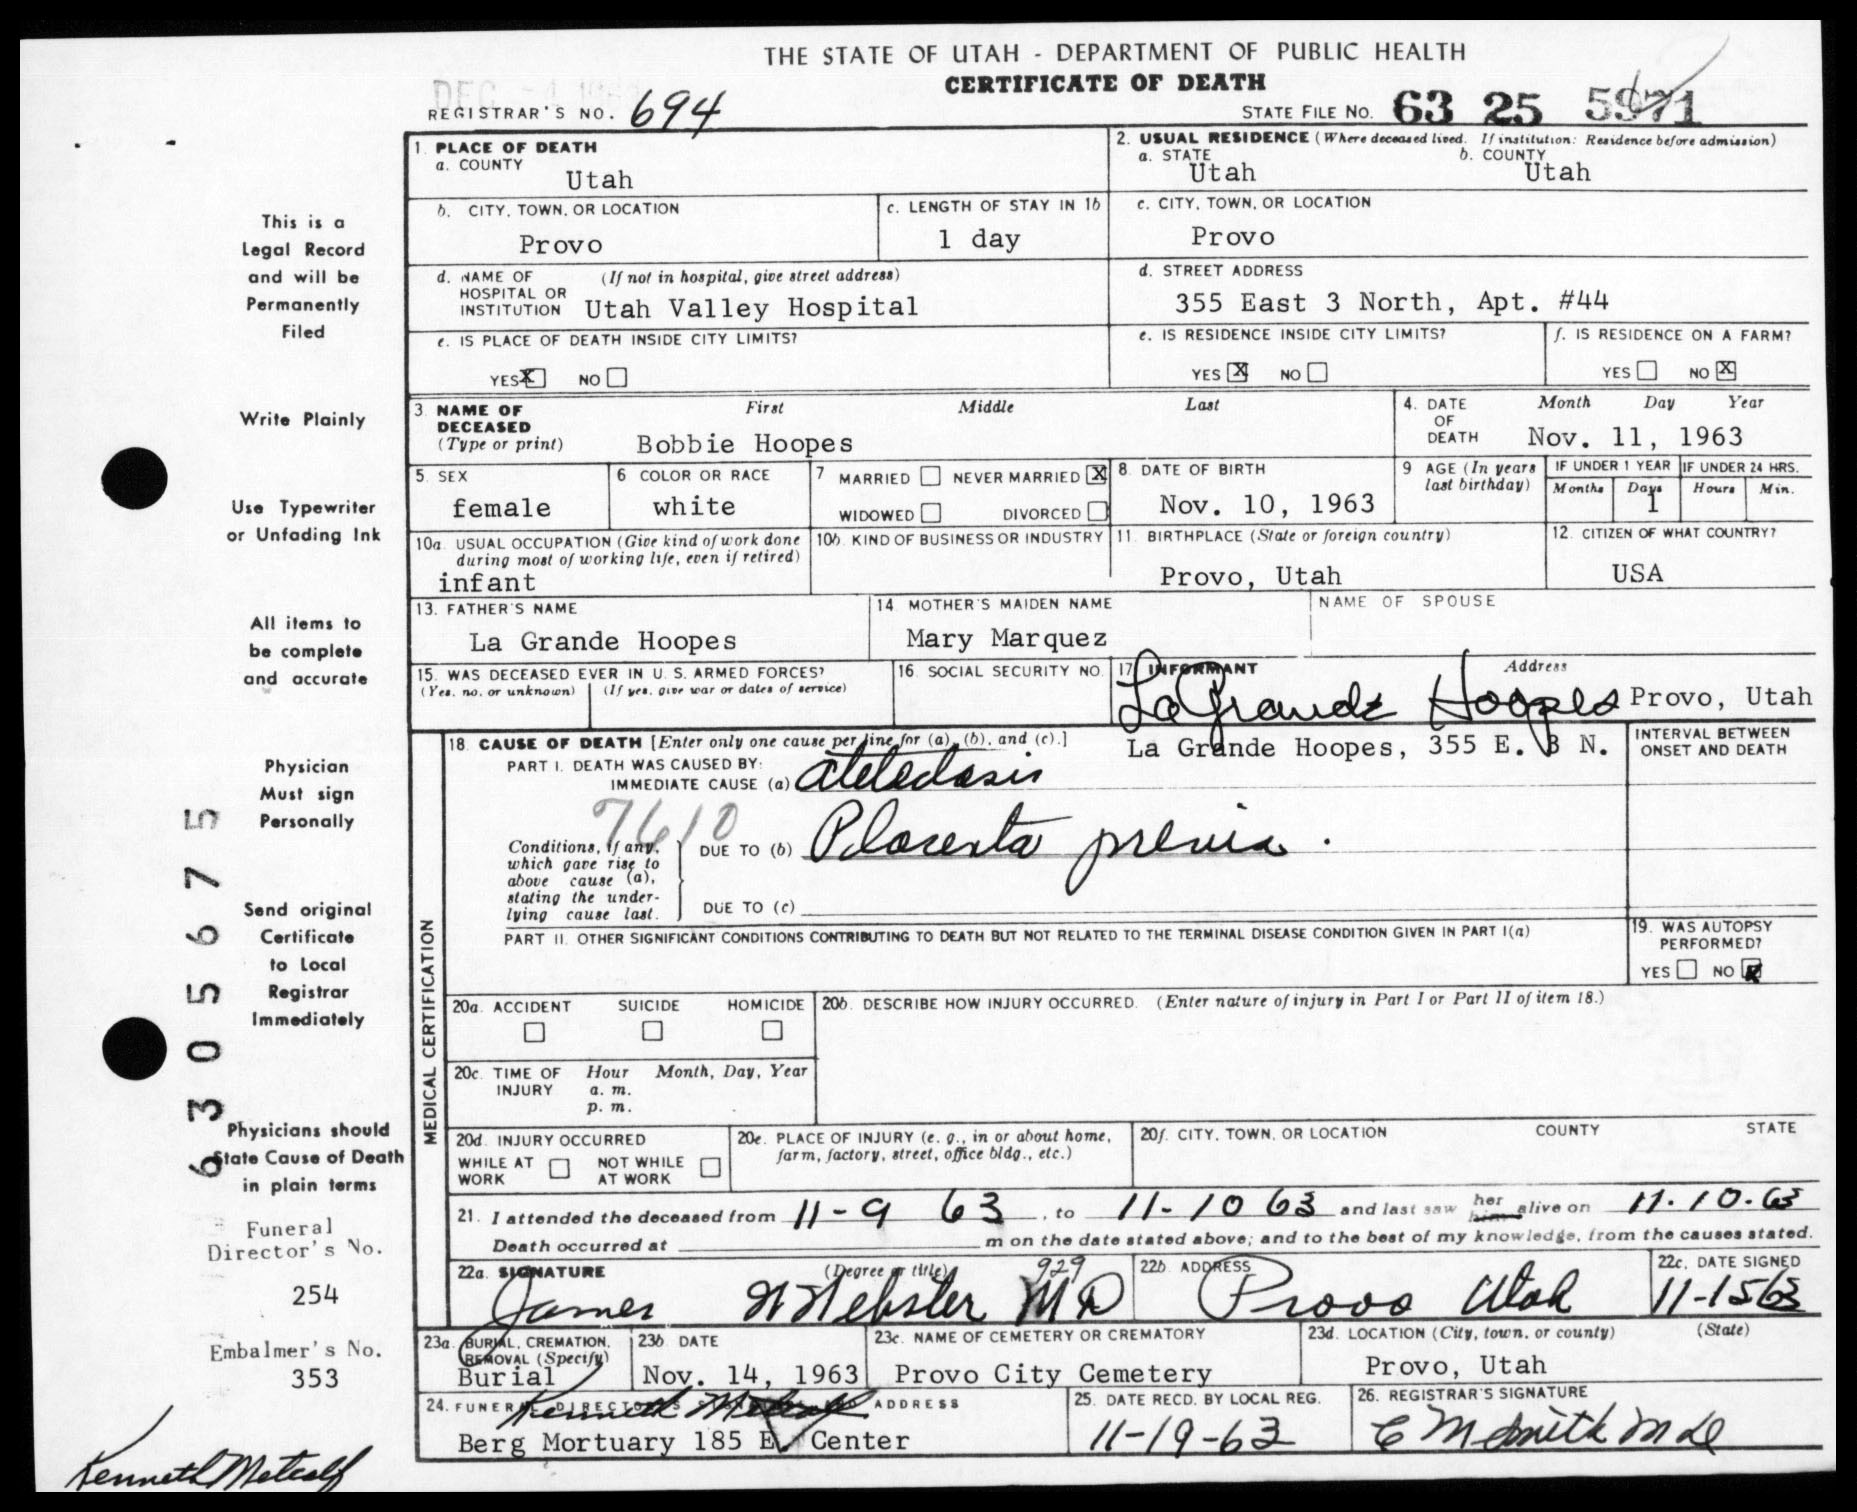 THE STATE OF UTAH - DEPARTMENT OF PUBLIC HEALTH
CERTIFICATE OF DEATH
DEC -4 196
REGISTRAR'S NO. 694
STATE FILE NO. 63 25 5971
This is a
Legal Record
and will be
Permanently
Filed
Write Plainly
Use Typewriter
or Unfading Ink
All items to
be complete
and accurate
Physician
Must sign
Personally
Send original
Certificate
to Local
Registrar
Immediately
Physicians should
State Cause of Death
in plain terms
Funeral
Director's No.
254
Embalmer's No.
353
Kenneth Metcalf
6305675
1. PLACE OF DEATH
a. COUNTY
Utah
2. USUAL RESIDENCE (Where deceased lived. If institution: Residence before admission)
a. STATE b. COUNTY
Utah Utah
b. CITY, TOWN, OR LOCATION
Provo
c. LENGTH OF STAY IN 1b
1 day
c. CITY, TOWN, OR LOCATION
Provo
d. NAME OF (If not in hospital, give street address)
HOSPITAL OR
INSTITUTION Utah Valley Hospital
d. STREET ADDRESS
355 East 3 North, Apt. #44
e. IS PLACE OF DEATH INSIDE CITY LIMITS?
YES X NO
e. IS RESIDENCE INSIDE CITY LIMITS?
YES X NO
f. IS RESIDENCE ON A FARM?
YES NO X
3. NAME OF First Middle Last
DECEASED
(Type or print) Bobbie Hoopes
4. DATE Month Day Year
OF
DEATH Nov. 11, 1963
5. SEX
female
6 COLOR OR RACE
white
7 MARRIED NEVER MARRIED X
WIDOWED DIVORCED
8. DATE OF BIRTH
Nov. 10, 1963
9 AGE (In years
last birthday)
IF UNDER 1 YEAR IF UNDER 24 HRS.
Months Days Hours Min.
1
10a. USUAL OCCUPATION (Give kind of work done
during most of working life, even if retired)
infant
10b. KIND OF BUSINESS OR INDUSTRY
11. BIRTHPLACE (State or foreign country)
Provo, Utah
12. CITIZEN OF WHAT COUNTRY?
USA
13. FATHER'S NAME
La Grande Hoopes
14. MOTHER'S MAIDEN NAME
Mary Marquez
NAME OF SPOUSE
15. WAS DECEASED EVER IN U. S. ARMED FORCES?
(Yes, no, or unknown) (If yes, give war or dates of service)
16. SOCIAL SECURITY NO.
17. INFORMANT Address
LaGrande Hoopes Provo, Utah
La Grande Hoopes, 355 E. 3 N.
MEDICAL CERTIFICATION
18. CAUSE OF DEATH [Enter only one cause per line for (a), (b), and (c).]
INTERVAL BETWEEN
ONSET AND DEATH
PART I. DEATH WAS CAUSED BY:
IMMEDIATE CAUSE (a) atelectasis
7610
Conditions, if any,
which gave rise to
above cause (a),
stating the under-
lying cause last.
DUE TO (b) Placenta previa.
DUE TO (c)
PART II. OTHER SIGNIFICANT CONDITIONS CONTRIBUTING TO DEATH BUT NOT RELATED TO THE TERMINAL DISEASE CONDITION GIVEN IN PART I(a)
19. WAS AUTOPSY
PERFORMED?
YES NO X
20a. ACCIDENT SUICIDE HOMICIDE
20b. DESCRIBE HOW INJURY OCCURRED. (Enter nature of injury in Part I or Part II of item 18.)
20c. TIME OF Hour Month, Day, Year
INJURY a. m.
p. m.
20d. INJURY OCCURRED
WHILE AT NOT WHILE
WORK AT WORK
20e. PLACE OF INJURY (e. g., in or about home,
farm, factory, street, office bldg., etc.)
20f. CITY, TOWN, OR LOCATION COUNTY STATE
21. I attended the deceased from 11-9 63, to 11-10 63 and last saw her him alive on 11-10-63
Death occurred at m on the date stated above; and to the best of my knowledge, from the causes stated.
22a. SIGNATURE (Degree or title)
929
James W Webster MD
22b. ADDRESS
Provo Utah
22c. DATE SIGNED
11-15 63
23a. BURIAL, CREMATION,
REMOVAL (Specify)
Burial
23b. DATE
Nov. 14, 1963
23c. NAME OF CEMETERY OR CREMATORY
Provo City Cemetery
23d. LOCATION (City, town, or county) (State)
Provo, Utah
24. FUNERAL DIRECTOR'S SIGNATURE AND ADDRESS
Kenneth Metcalf
Berg Mortuary 185 E. Center
25. DATE RECD. BY LOCAL REG.
11-19-63
26. REGISTRAR'S SIGNATURE
C M Smith MD